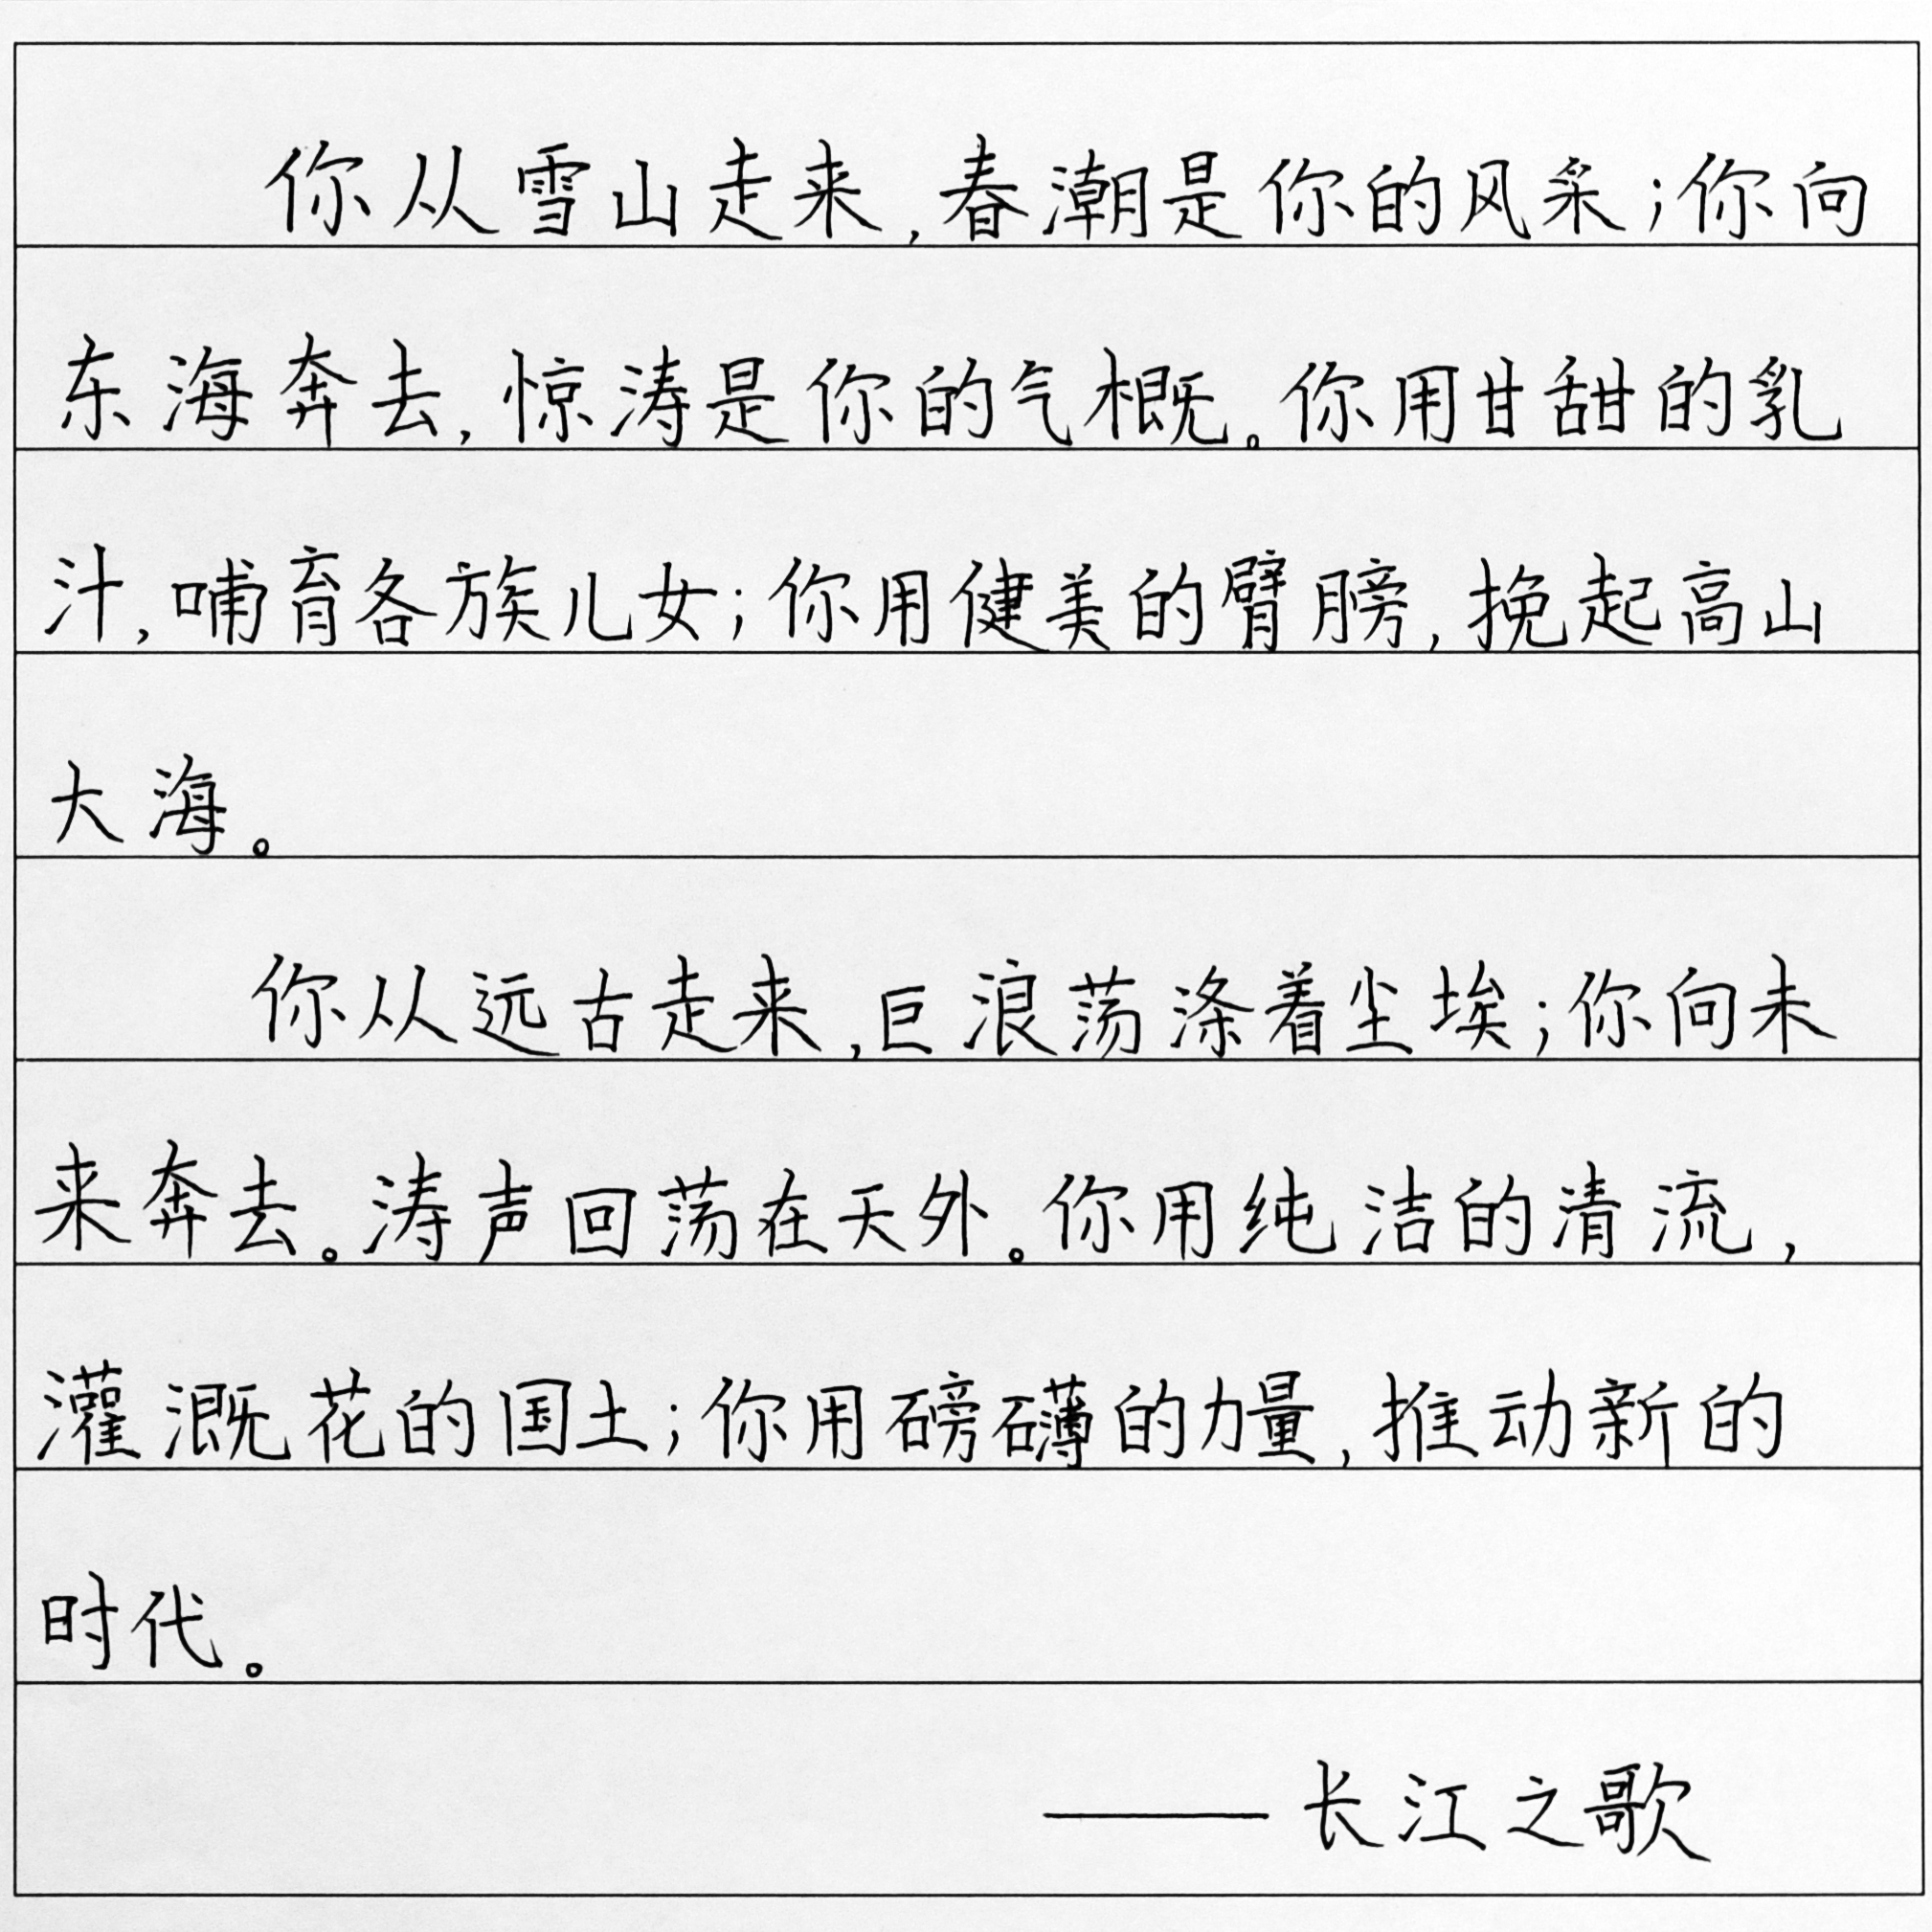 你从雪山走来,春潮是你的风采;你向
东海奔去,惊涛是你的气概。你用甘甜的乳
汁,哺育各族儿女;你用健美的臂膀,挽起高山
大海。
你从远古走来,巨浪荡涤着尘埃;你向未
来奔去。涛声回荡在天外。你用纯洁的清流,
灌溉花的国土;你用磅礴的力量,推动新的
时代。
——长江之歌